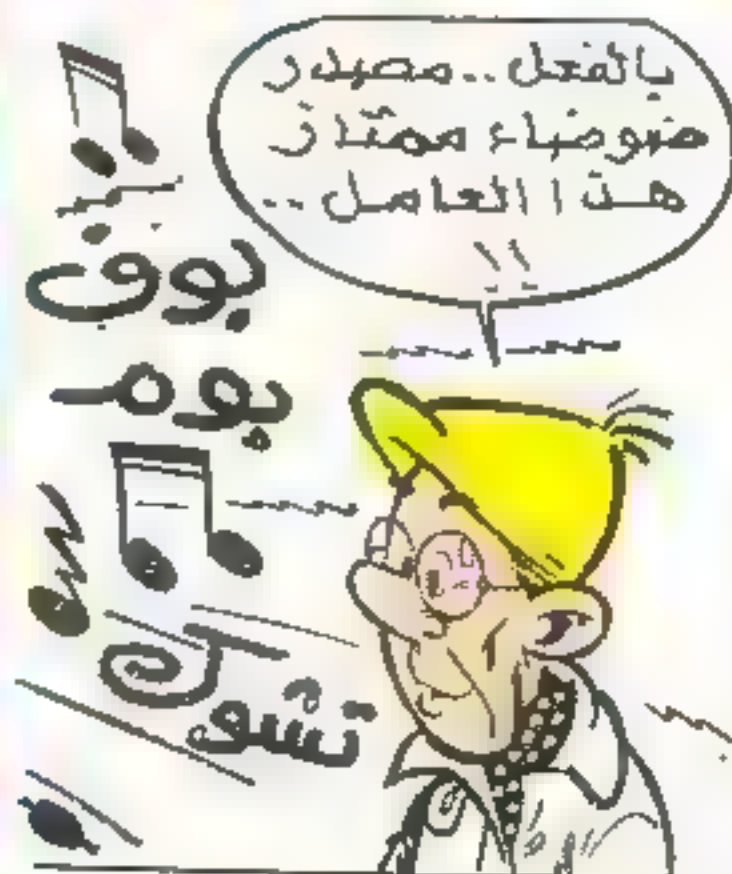 بالفعل..مصدر
ضوضاء ممتاز
هذا العامل..
!!
بوف
بوم
تشوك